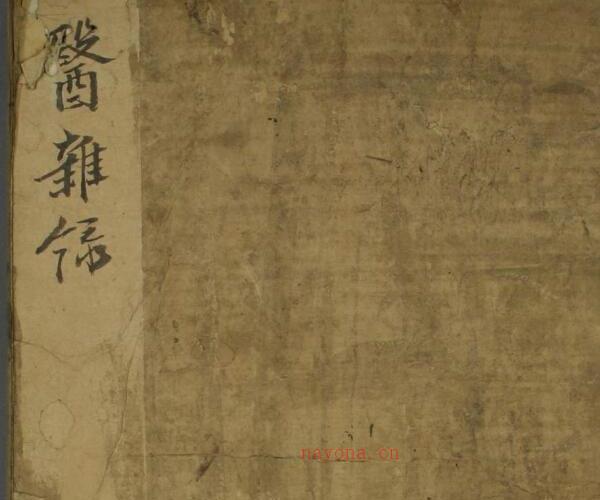 醫雜録
nayona.cn